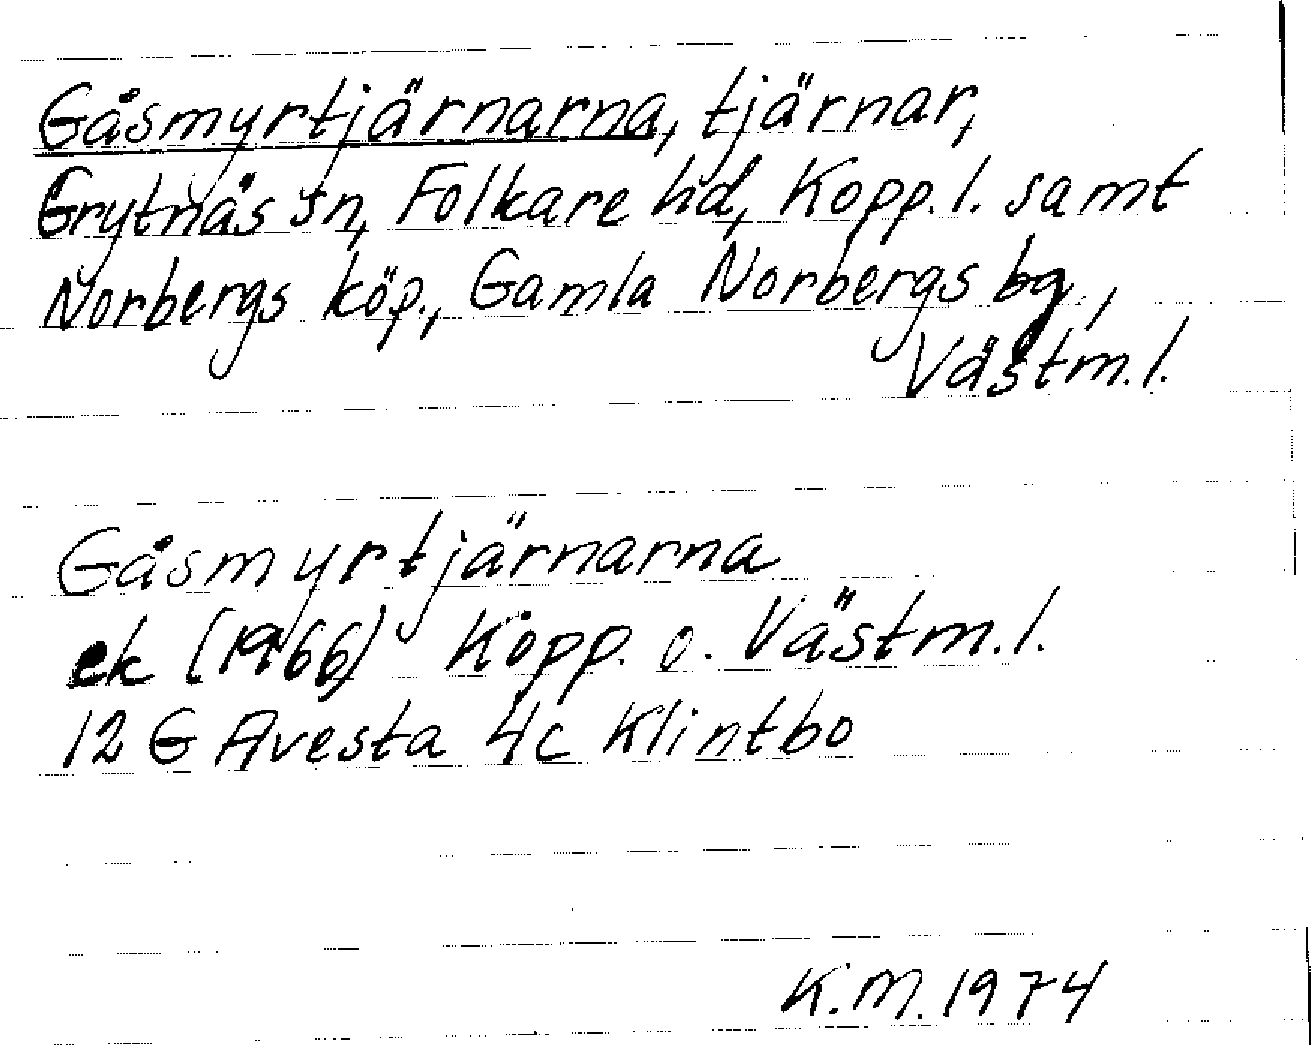 Gåsmyrtjärnarna, tjärnar,
Grytnäs sn, Folkare hd, Kopp.l. samt
Norbergs köp., Gamla Norbergs bg,
Västm.l.
Gåsmyrtjärnarna
ek (1966) Kopp. o. Västm.l.
12 G Avesta 4c Klintbo
K.M. 1974